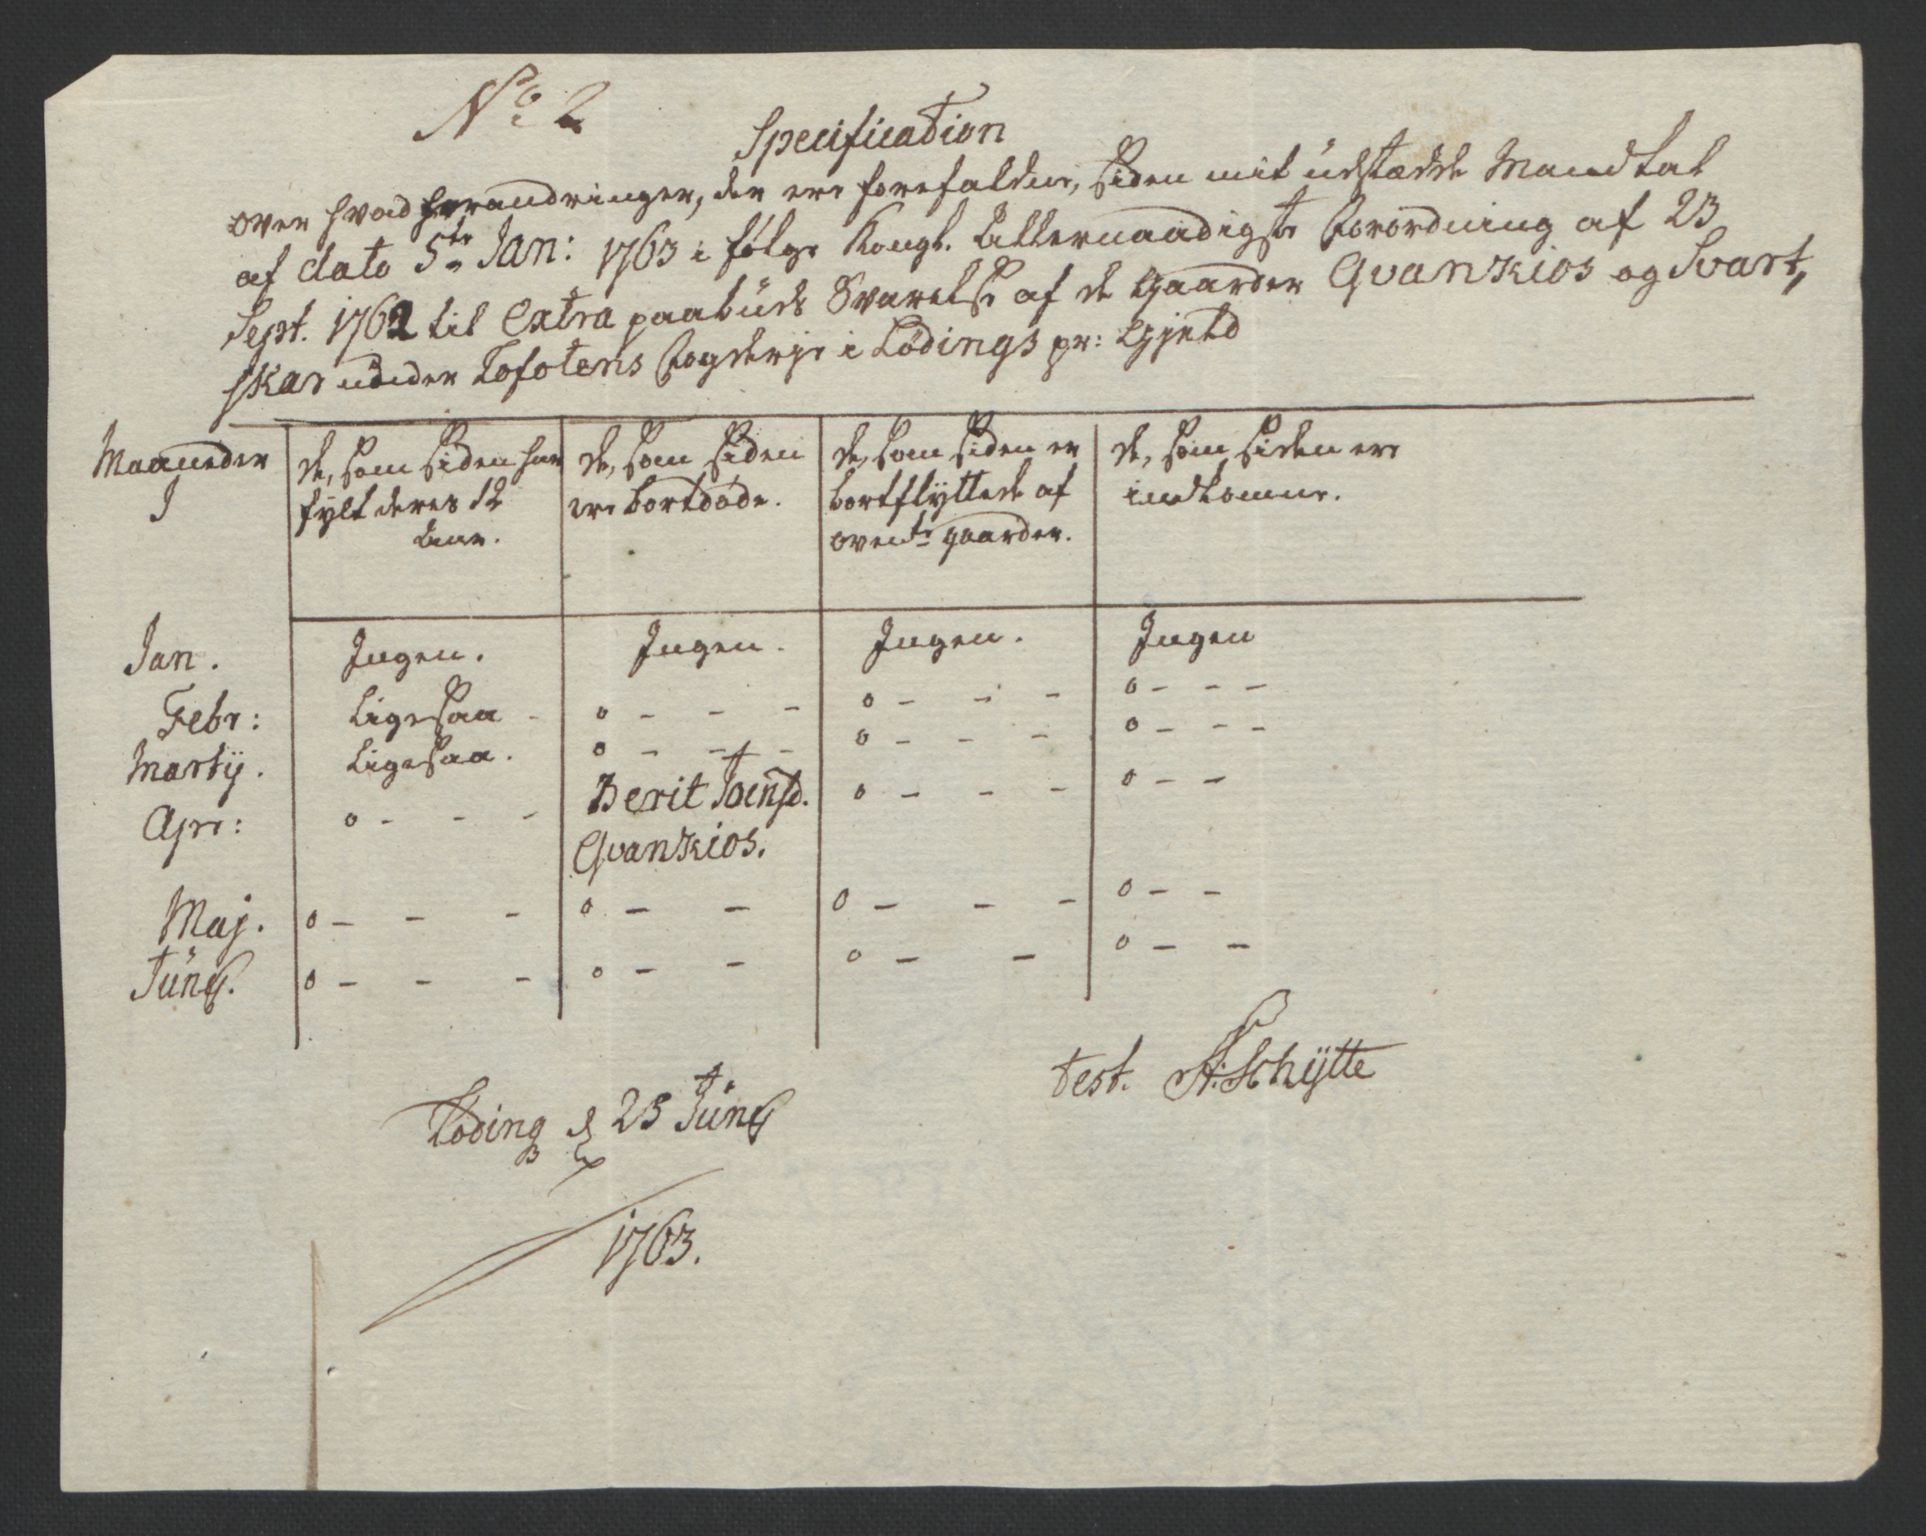 No 2
Specification
over hvad forandringer, der ere forefaldne, Siden mit üdstædde Mandtal
af dato 5te Jan: 1763 i følge Kongl. Allernaadigste Forordning af 23
Sept. 1762 til Extra paabüds Svarelse af de Gaarder Qvankios og Svart,
skar under Lofotens Fogderje i Lødings pr: Gjeld
Maaneder
de, som siden har
fylt deres 12
Aar.
de, som siden
ere bortdøde.
de, som siden er
bortflyttede af
ovente gaarder.
de, som siden ere
indkomne.
Jan. Ingen. Ingen. Ingen. Ingen
Febr: Ligesaa - o - - - o - - - o - - -
Martij. Ligesaa. o - - - o - - - o - - -
Apr: o - - - Berit Joensd. o - - - o - -
Qvankios.
Maj. o - - - o - - o - - - o - -
Jünij. o - - - o - - o - - o - -
test. A: Schÿtte
Löding d 25 Jünij
1763.